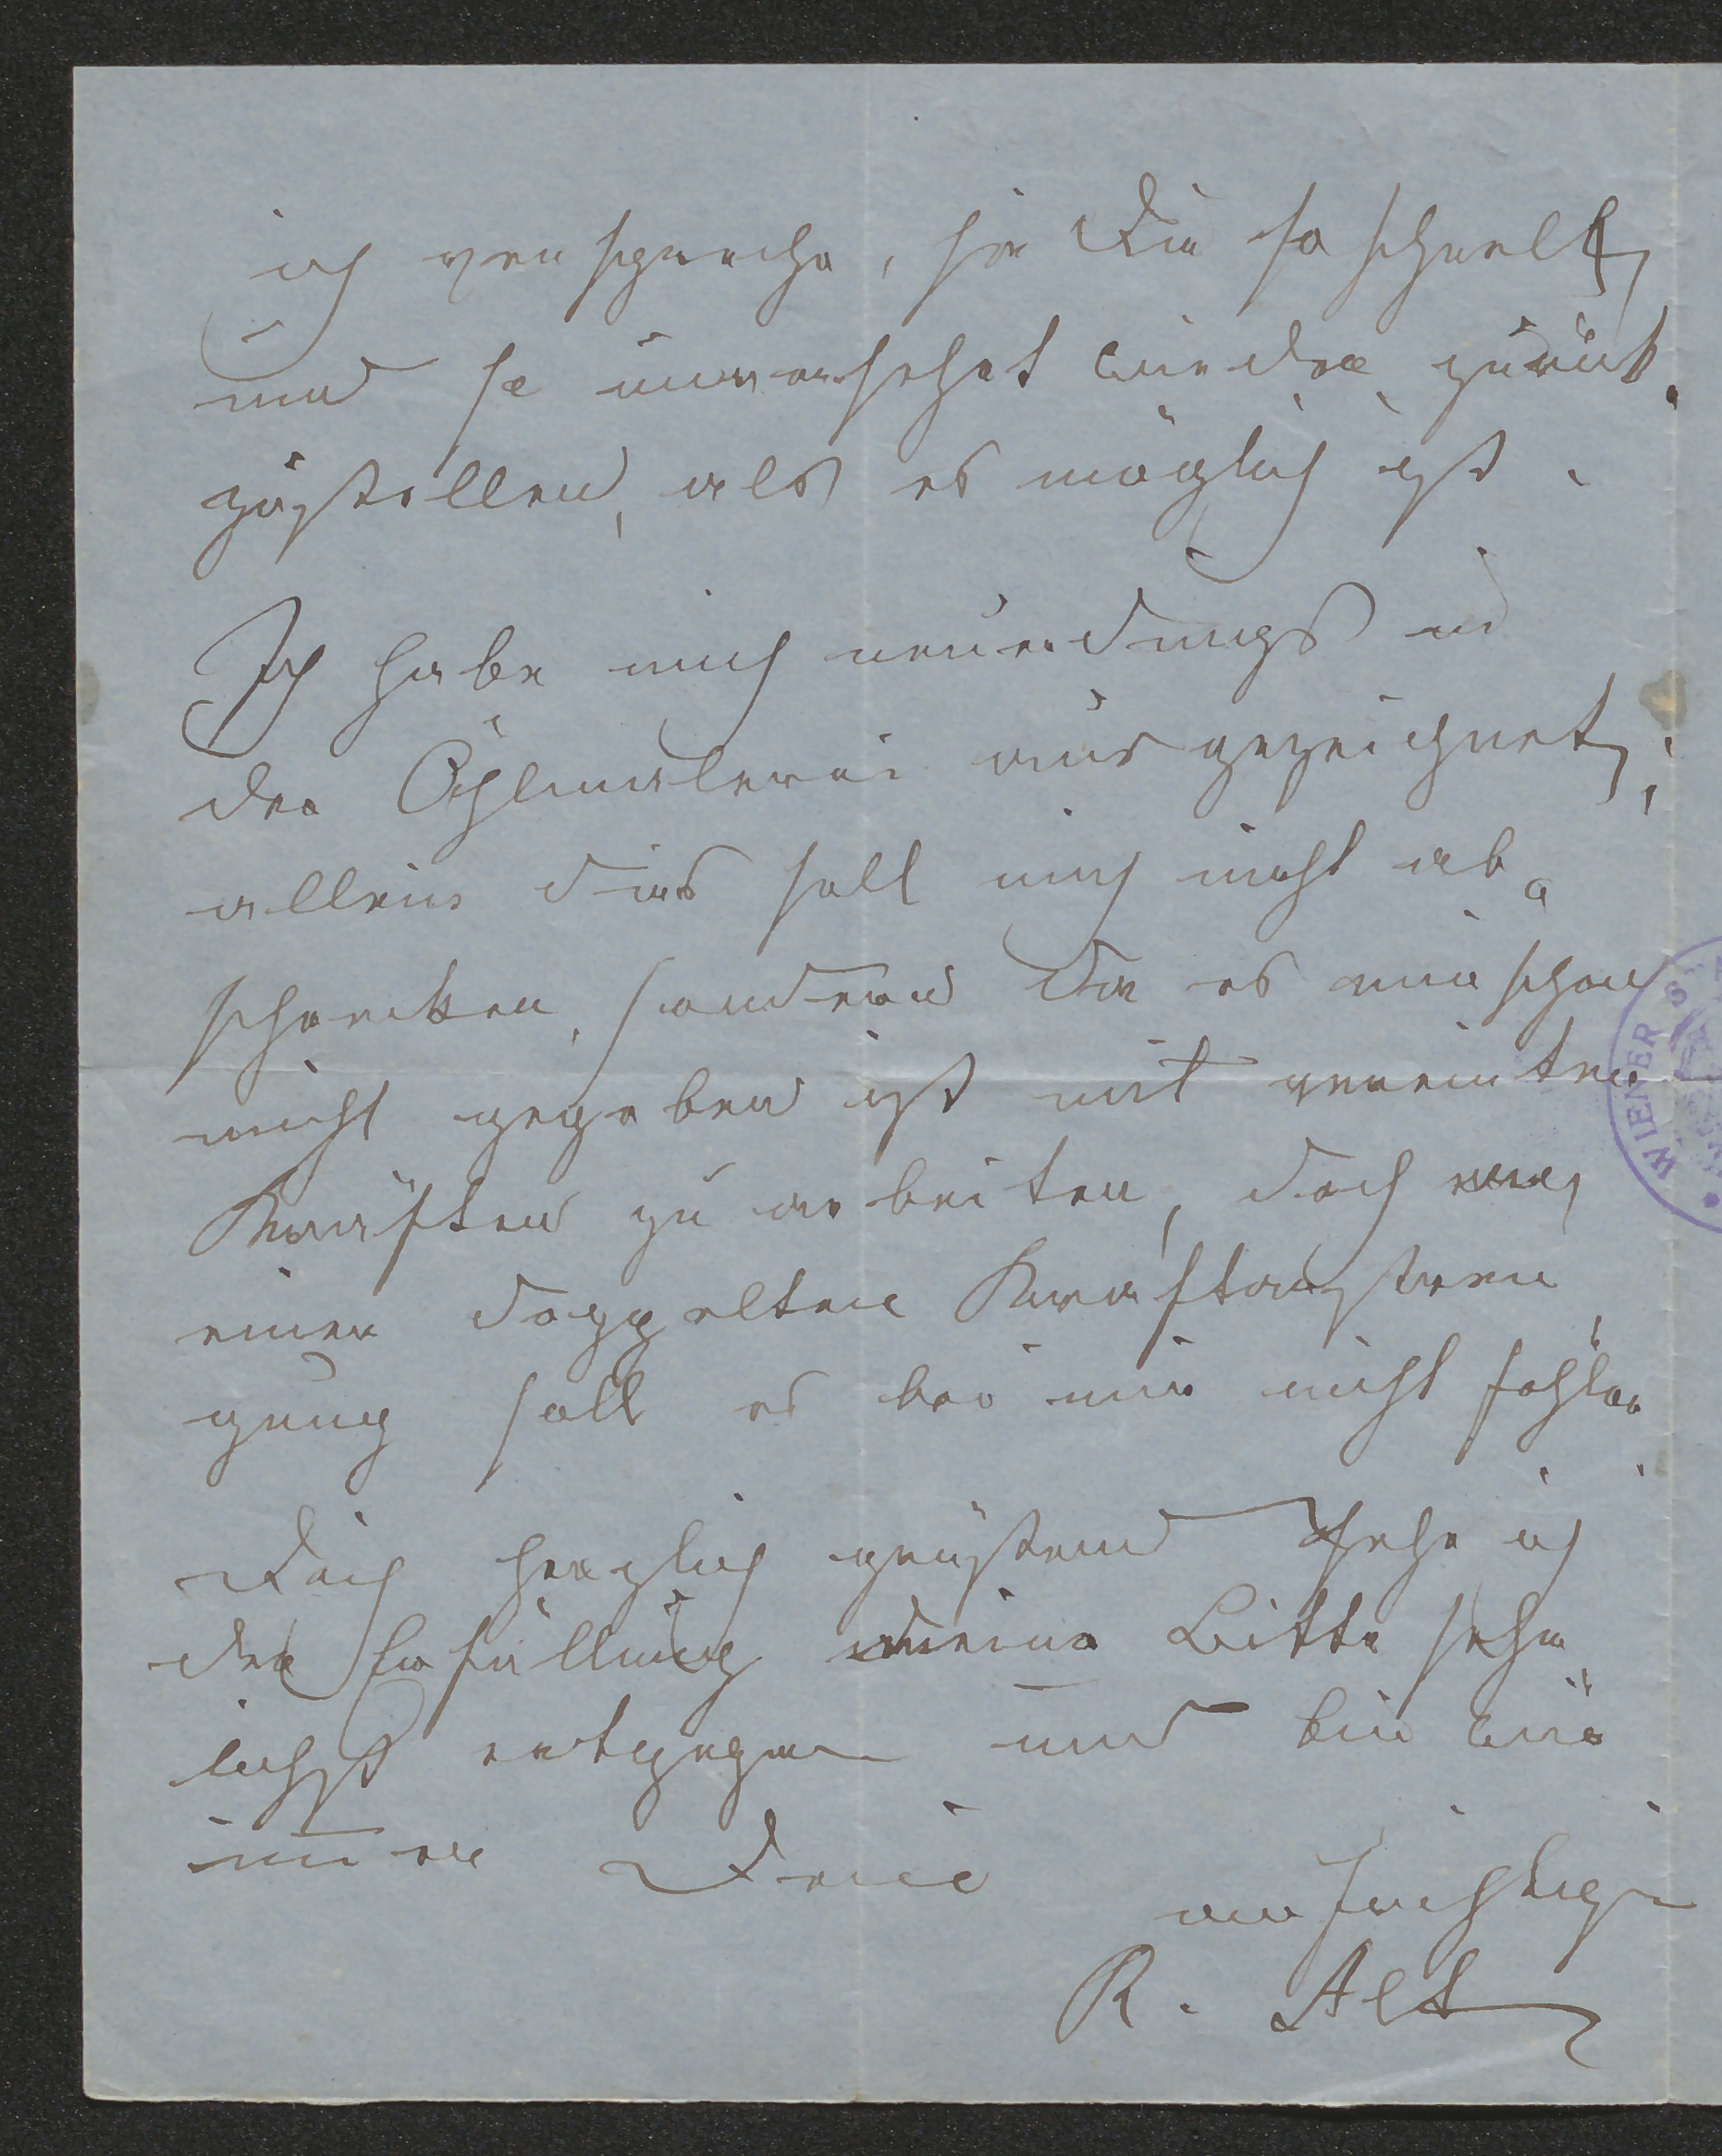 ich verspreche, sie Dir so schnell
und so unversehrt wieder zurück
zustellen, als es möglich ist.
Ich habe mich neuerdings in
der Öhlmalerei ausgezeichnet,
allein dies soll mich nicht ab-
schrecken, sondern da es mir schon
nicht gegeben ist mit vereinten
Kräften zu arbeiten, doch
einer doppelten Kraftanstren
gung soll es bei mir nicht fehlen
Dich herzlich grüßend sehe ich
der Erfüllung meiner Bitte sehn
lichst entgegen und bin wie
im̅er Dein
aufrichtiger
R. Alt
WIENER